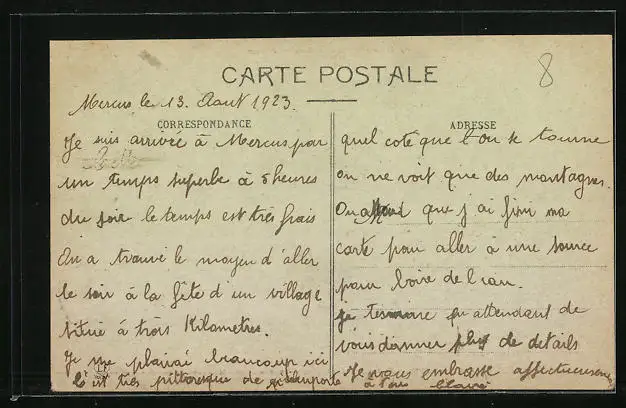 CARTE POSTALE
8
Mercus le 13. Aout 1923.
CORRESPONDANCE
Je suis arrivée à Mercus par
un temps superbe à 5 heures
du soir le temps est très frais
On a trouvé le moyen d'aller
le soir à la fête d'un village
situé à trois Kilometres.
Je me plairai beaucoup ici
C'est très pittoresque de
ADRESSE
quel coté que l'on se tourne
on ne voit que des montagnes.
On attend que j'ai fini ma
carte pour aller à une source
pour boire de l'eau.
Je termine en attendant de
vous donner plus de details
Je vous embrasse affectueusement